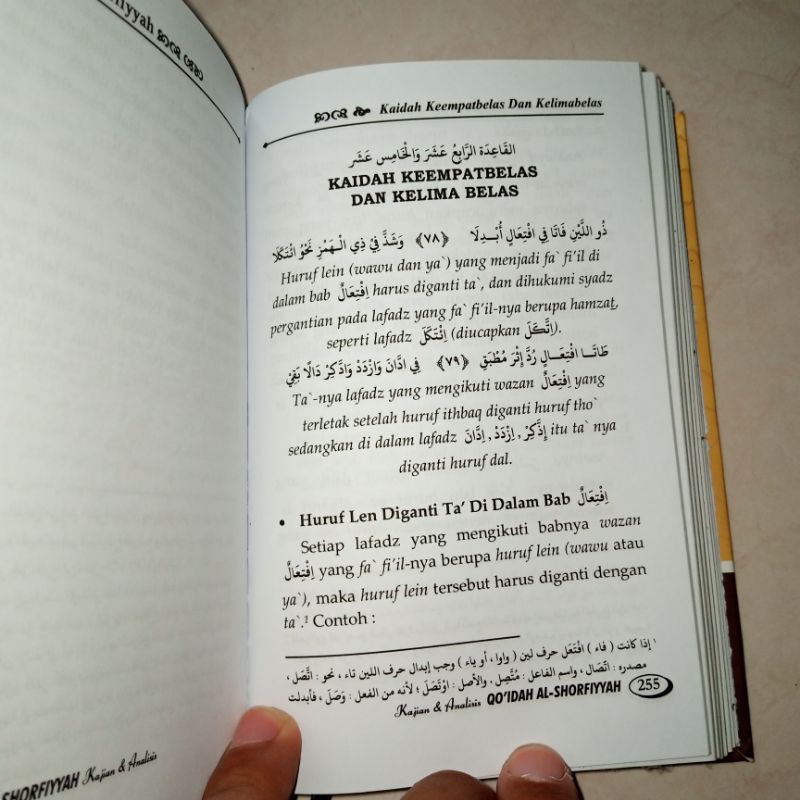 fiyyah
Kaidah Keempatbelas Dan Kelimabelas
القَاعِدَة الرَّابِعُ عَشَرَ وَالْخَامِس عَشَر
KAIDAH KEEMPATBELAS
DAN KELIMA BELAS
ذُو اللَّيْنِ فَاتَا فِي افْتِعَالٍ أُبْدِلَا ﴿٧٨﴾ وَشَذَّ فِيْ ذِي الْهَمْزِ نَحْوُ ائْتَكَلَا
Huruf lein (wawu dan ya`) yang menjadi fa` fi'il di
dalam bab اِفْتِعَالٌ harus diganti ta`, dan dihukumi syadz
pergantian pada lafadz yang fa` fi'il-nya berupa hamzat,
seperti lafadz اِئْتَكَلَ (diucapkan اِتَّكَلَ).
طَاتَا افْتِعَالٍ رُدَّ إِثْرَ مُطْبَقِ ﴿٧٩﴾ فِي ادَّانَ وَازْدَدْ وَادَّكِرْ دَالًا بَقِيْ
Ta`-nya lafadz yang mengikuti wazan اِفْتِعَالٌ yang
terletak setelah huruf ithbaq diganti huruf tho`
sedangkan di dalam lafadz اِدَّانَ , اِزْدَدْ , اِدَّكِرْ itu ta` nya
diganti huruf dal.
• Huruf Len Diganti Ta' Di Dalam Bab اِفْتِعَالٌ
Setiap lafadz yang mengikuti babnya wazan
اِفْتِعَالٌ yang fa` fi'il-nya berupa huruf lein (wawu atau
ya`), maka huruf lein tersebut harus diganti dengan
ta`.¹ Contoh :
¹ إذا كانت ( فاء ) افْتَعَل حرف لين ( واوا ، أو ياء ) وجب إبدال حرف اللين تاء ، نحو : اتَّصَل ،
مصدره : اتِّصَال ، واسم الفاعل : مُتَّصِل . والأصل : اوْتَصَلَ ؛ لأنه من الفعل : وَصَلَ ، فأبدلت
Kajian & Analisis QO'IDAH AL-SHORFIYYAH 255
SHORFIYYAH Kajian & Analisis